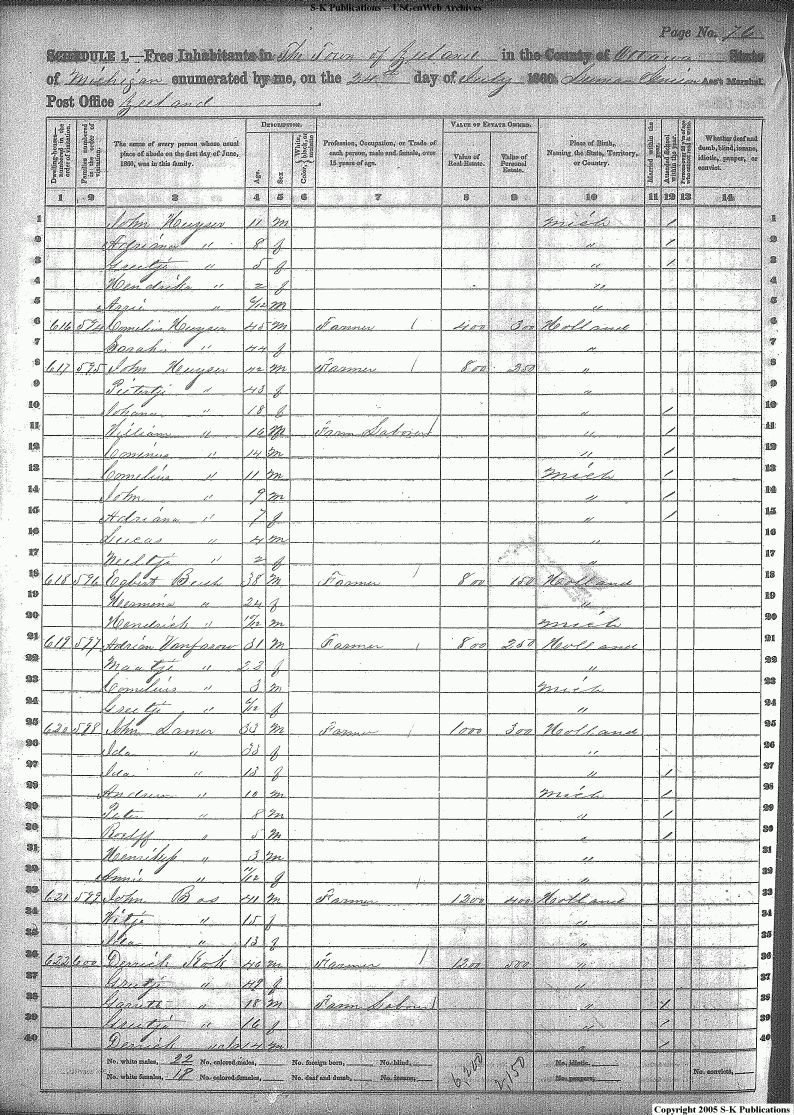 S-K Publications – USGenWeb Archives
Page No. 76
SCHEDULE 1.—Free Inhabitants in The Town of Zeeland in the County of Ottawa State
of Michigan enumerated by me, on the 24th day of July 1860. Ass't Marshal.
Post Office Zeeland
Dwelling-houses—numbered in the order of visitation.
Families numbered in the order of visitation.
The name of every person whose usual place of abode on the first day of June, 1860, was in this family.
DESCRIPTION.
Age.
Sex
Color, White, black, or mulatto
Profession, Occupation, or Trade of each person, male and female, over 15 years of age.
VALUE OF ESTATE OWNED.
Value of Real Estate.
Value of Personal Estate.
Place of Birth, Naming the State, Territory, or Country.
Married within the year.
Attended School within the year.
Whether deaf and dumb, blind, insane, idiotic, pauper, or convict.
1 2 3 4 5 6 7 8 9 10 11 12 13 14
1 John Huyser 11 m Mich / 1
2 Adriana " 8 f " / 2
3 Greetje " 5 f " / 3
4 Hendrika " 2 f " 4
5 " /12 m " 5
6 616 594 Cornelius Huyser 45 m Farmer / 400 300 Holland 6
7 Sarah " 44 f " 7
8 617 595 John Huyser 42 m Farmer / 800 250 " 8
9 Pietertje " 43 f " 9
10 Johana " 18 f " / 10
11 William " 16 m Farm Laborer / " / 11
12 " 14 m " / 12
13 Cornelius " 11 m Mich / 13
14 John " 9 m " / 14
15 Adriana " 7 f " / 15
16 Lucas " 4 m " 16
17 Neeltje " 2 f " 17
18 618 596 Egbert 38 m Farmer / 800 150 Holland 18
19 Hermina " 24 f " 19
20 Hendrick " /12 m Mich 20
21 619 597 Adrian 31 m Farmer / 800 250 Holland 21
22 Maatje " 22 f " 22
23 Cornelius " 3 m Mich 23
24 Greetje " /12 f " 24
25 620 598 John Lamer 33 m Farmer / 1000 300 Holland 25
26 Ida " 33 f " 26
27 Ida " 13 f " / 27
28 Andrew " 10 m Mich / 28
29 Peter " 8 m " / 29
30 " 5 m " / 30
31 " 3 m " 31
32 Annie " /12 f " 32
33 621 599 John Bos 41 m Farmer 1200 400 Holland 33
34 " 15 f " 34
35 Ida " 13 f " 35
36 622 600 Derrick Kok 46 m Farmer / 1200 500 " 36
37 Greetje " 49 f " 37
38 Garritt " 18 m Farm Laborer / " / 38
39 Greetje " 16 f " / 39
40 Derrick " 14 m " / 40
No. white males, 22 No. colored males, No. foreign born, No. blind, 6,200 2,150 No. idiotic,
No. white females, 18 No. colored females, No. deaf and dumb, No. insane, No. paupers, No. convicts,
Copyright 2005 S-K Publications